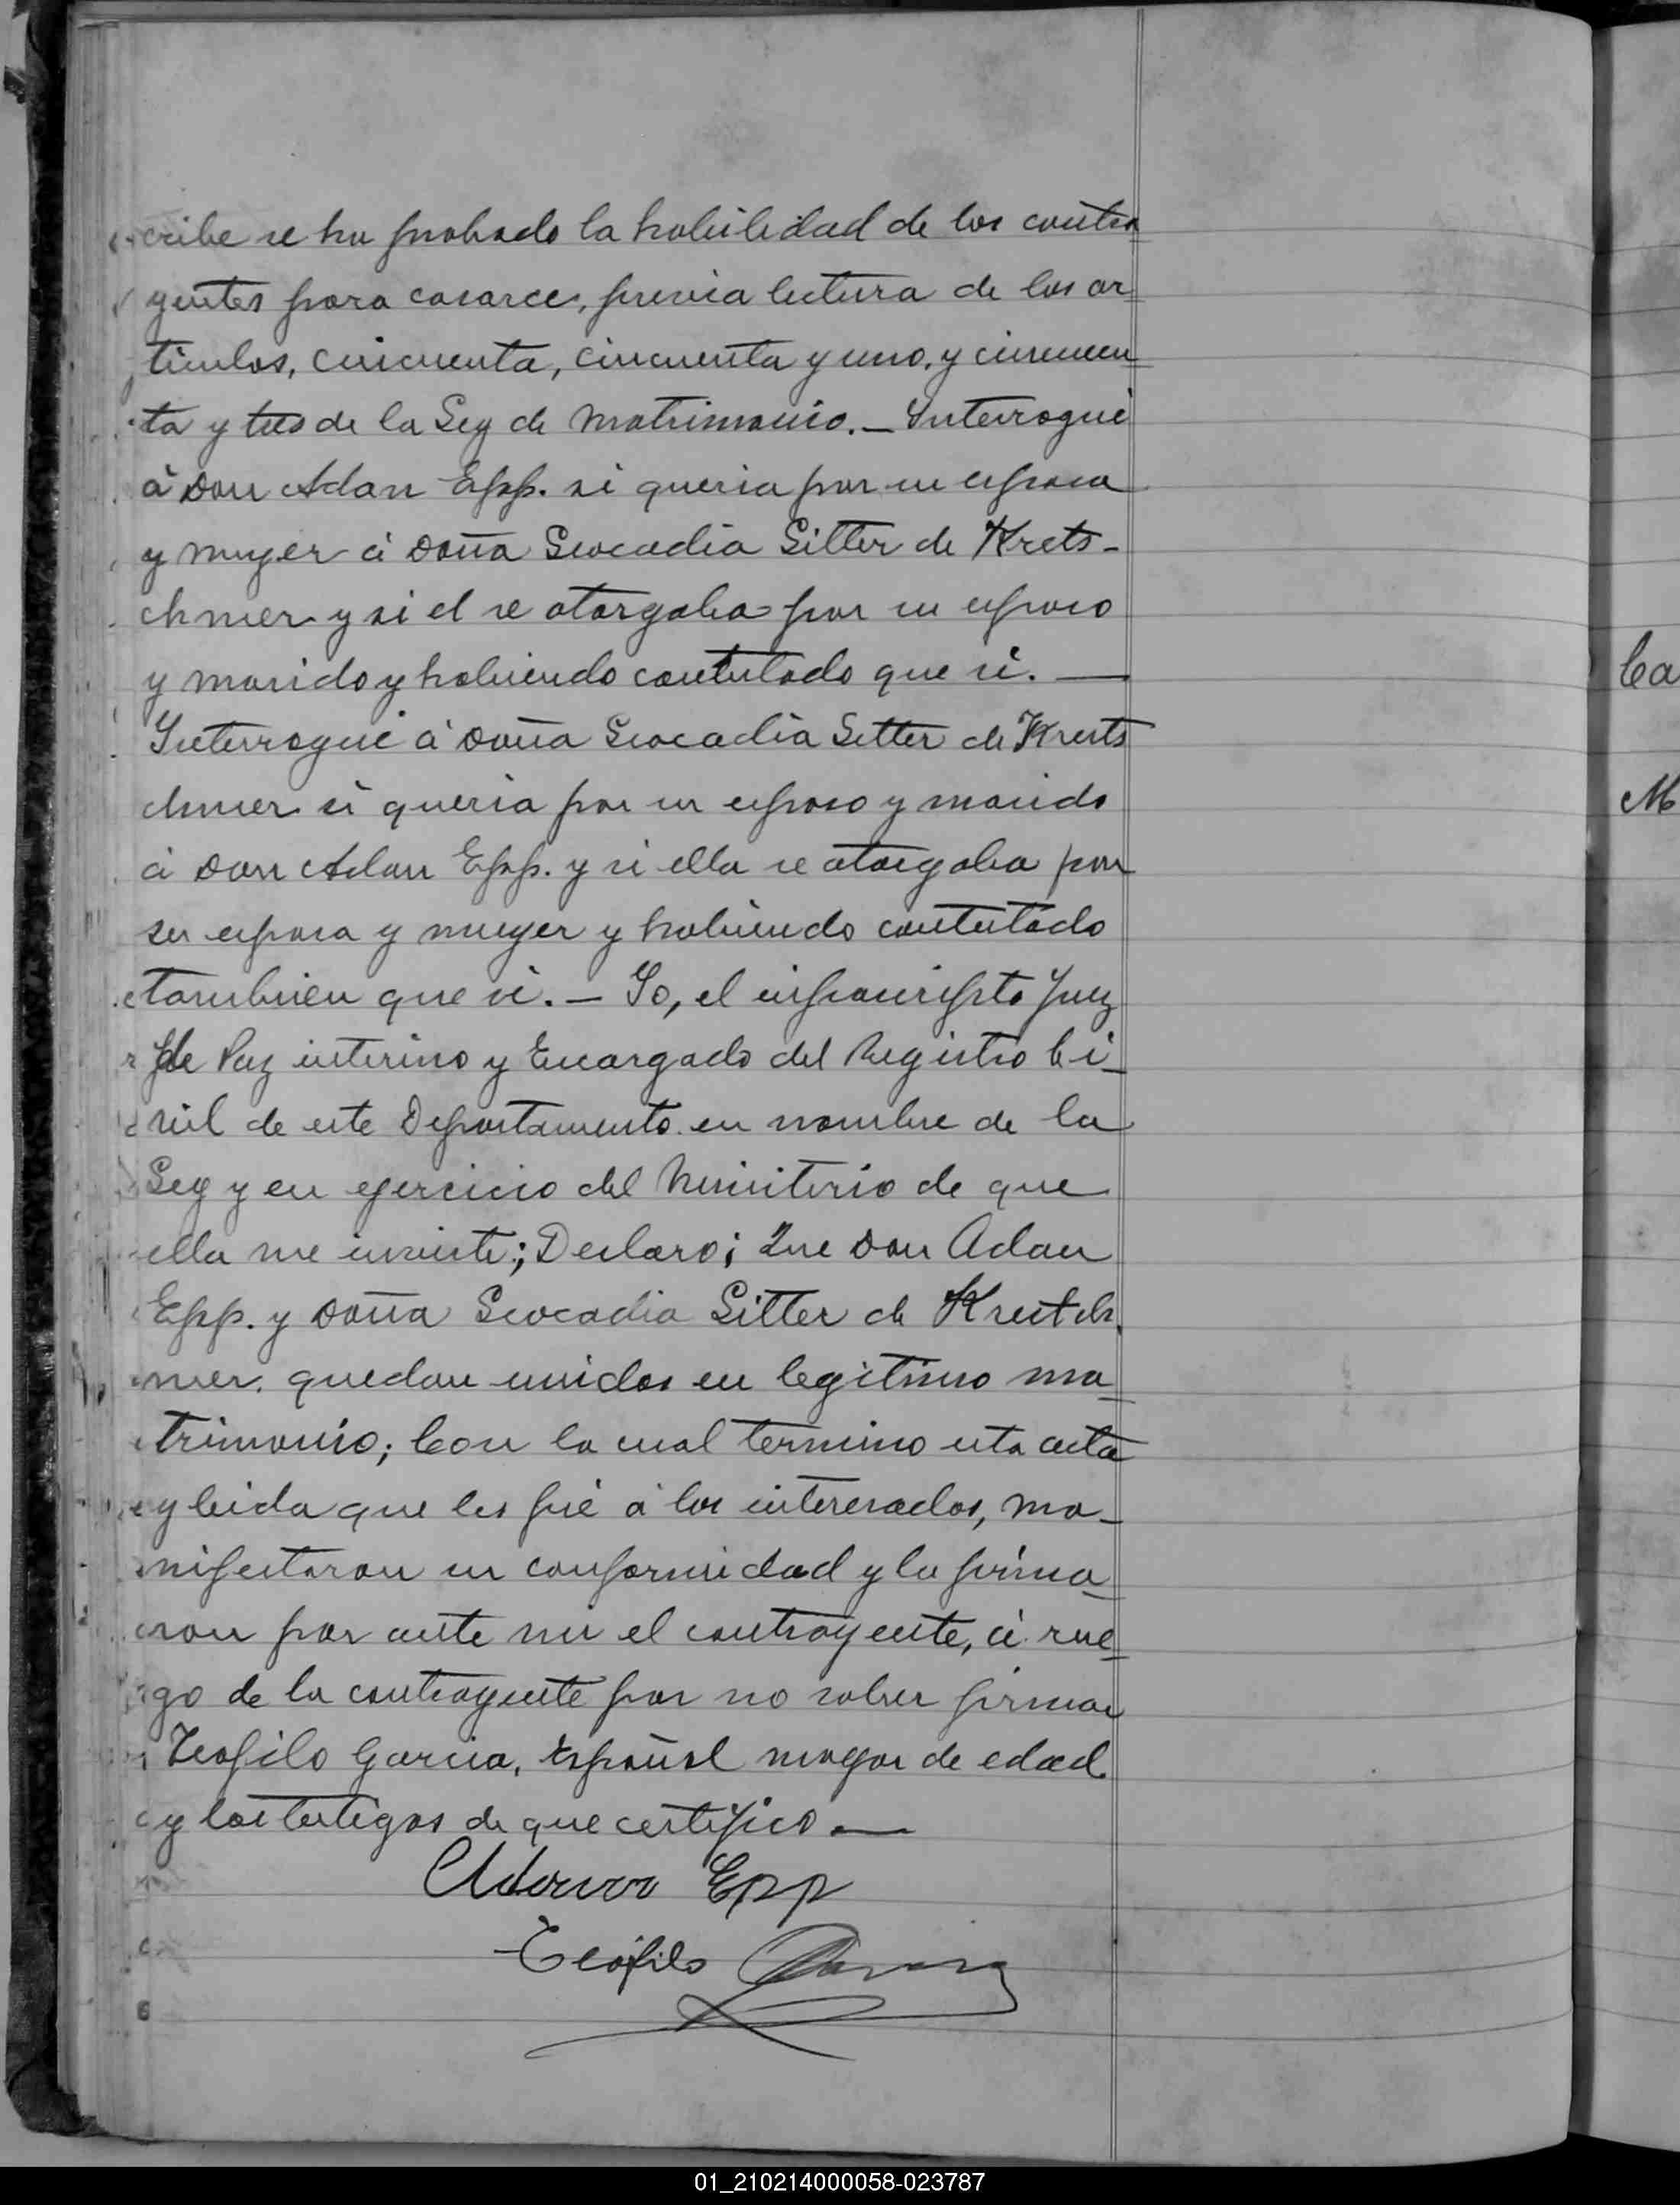 cribe se ha probado la habilidad de los contra
yentes para casarce, previa lectura de los ar
ticulos, cincuenta, cincuenta y uno, y cincuen
ta y tres de la Ley de Matrimonio. — Interrogué
á Don Adan Epp. si queria por su esposa
y muger á Doña Leocadia Sitter de Krets-
chmer y si el se otorgaba por su esposo
y marido y habiendo contestado que si. —
Interrogué á Doña Leocadia Sitter de Krests
chmer si queria por su esposo y marido
á Don Adan Epp. y si ella se otorgaba por
su esposa y muger y habiendo contestado
tambien que si. — Yo, el infrascripto Juez
de Paz interino y Encargado del Registro Ci-
vil de este Departamento en nombre de la
Ley y en ejercicio del Ministerio de que
ella me inviste; Declaro; Que Don Adan
Epp. y Doña Leocadia Sitter de Krestch
mer. quedan unidos en legitimo ma-
trimonio; Con la cual termino esta acta
y leida que les fué á los interesados, ma-
nifestaron su conformidad y la firma-
ron por ante mi el contrayente, á rue-
go de la contrayente por no saber firmar
Teofilo Garcia, Español mayor de edad
y los testigos de que certifico —
Epp
Teófilo Garcia
Ca
M
01_210214000058-023787